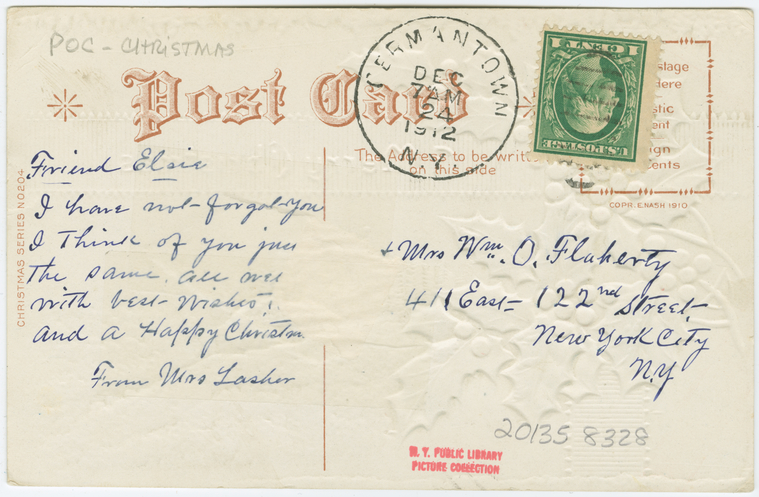 POC - CHRISTMAS
Post Card
GERMANTOWN
DEC
7 AM
24
1912
N.Y.
1 CENT 1
U.S. POSTAGE
stage
ere
stic
ent
ign
ents
The Address to be writt
on this side
COPR. E. NASH 1910
CHRISTMAS SERIES NO 204
Friend Elsie
I have not forgot you
I think of you just
the same. all well
with best wishes.
and a Happy Christm
From Mrs Lasher
Mrs Wm. O. Flaherty
411 East 122nd Street.
New York City
N.Y
20135 8328
N. Y. PUBLIC LIBRARY
PICTURE COLLECTION